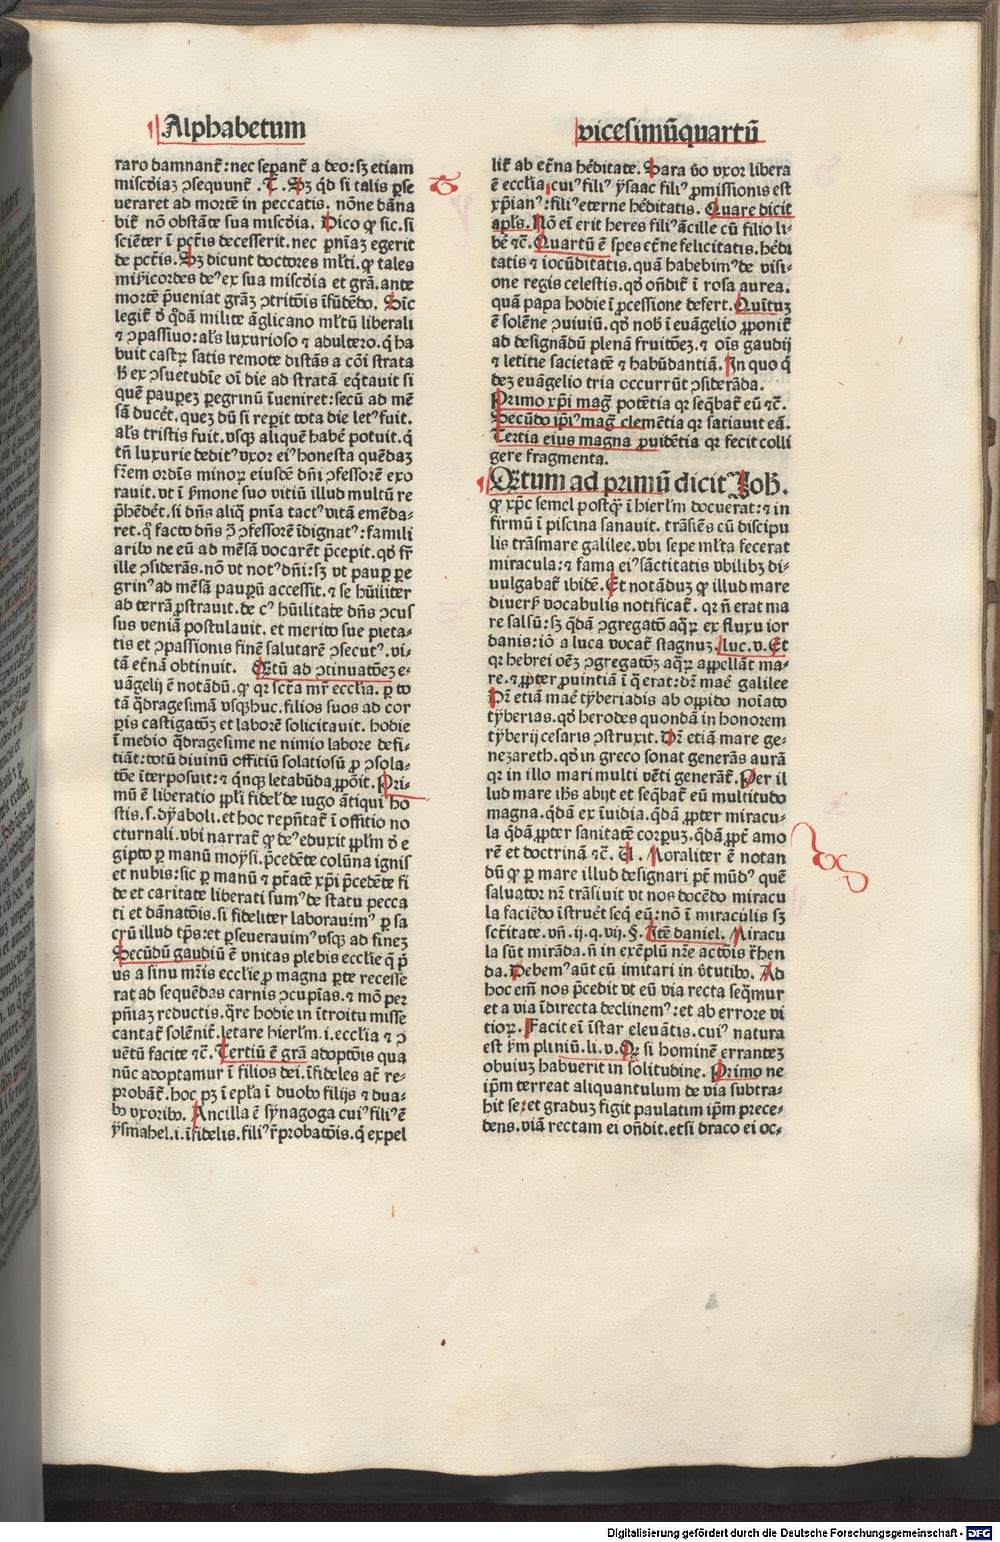 Alphabetum
vicesimūquartū
raro damnanť: nec sepanť a deo: sꝫ etiam
miscďiaꝫ ꝯsequunť. T. Sꝫ qď si talis ꝑse
ueraret ad mortē in peccatis. nōne dāna
biť nō obstāte sua miscďia. Dico ꝙ sic. si
sciēter ī pctīs decesserit. nec pn̄iaꝫ egerit
de pctīs. Sꝫ dicunt doctores mlti. ꝙ tales
misicordes deꝰ ex sua miscďia et grā. ante
mortē p̄ueniat grāꝫ ꝯtritōis īfūdēdo. Sic
legiť ď qdā milite āglicano mltū liberali
⁊ ꝯpassiuo: als luxurioso ⁊ adultero. q ha
buit castꝝ satis remote distās a cōi strata
hic ex ꝯsuetudīe oī die ad stratā eqtauit si
quē paupeꝫ ꝑegrinū īueniret: secū ad mē
sā ducēt. queꝫ dū si reꝑit tota die letꝰ fuit.
als tristis fuit. vsqꝫ aliquē habē potuit. q
tn̄ luxurie deditꝰ vxor eiꝰ honesta quēdaꝫ
fr̄em ordīs minoꝝ eiusdē dn̄i ꝯfessorē exo
rauit. vt ī sermone suo vitiū illud multū re
p̄hēdēt. si dn̄s aliq pn̄ia tactꝰ vitā emēda-
ret. qď facto dn̄s ꝯtra ꝯfessorē īdignatꝰ: famili
aribꝰ ne eū ad mēsā vocarēt p̄cepit. qď fr̄
ille ꝯsiderās. nō vt notꝰ dn̄i: sꝫ vt paupꝝ ꝑe
grinꝰ ad mēsā paupū accessit. ⁊ se hūiliter
ad terrā ꝓstrauit. de cꝰ hūilitate dn̄s ꝯcus
sus veniā postulauit. et merito sue pieta-
tis et ꝯpassionis finē salutarē ꝯsecutꝰ. vi-
tā etnā obtinuit. Qtū ad ꝯtinuatōeꝫ e-
uāgelij ē notādū. ꝙ qꝛ sctā mr̄ ecclīa. ꝑ to
tā qdragesimā vsqꝫ huc. filios suos ad cor
ꝑis castigatōꝫ et laborē solicitauit. hodie
ī medio qdragesime ne nimio labore defi-
tiāt: totū diuinū offitiū solatiosū ꝑ ꝯsola-
tōe īterposuit: ⁊ qnqꝫ letabūda ꝓpōit. Pri-
mū ē liberatio ppli fidel de iugo ātiqui ho
stis. s. dyaboli. et hoc rep̄ntať ī offitio no
cturnali. vbi narrať ꝙ deꝰ eduxit pplm ď e
gipto ꝑ manū moysi. p̄cedēte colūna ignis
et nubis: sic ꝑ manū ⁊ ptāte xp̄i p̄cedēte fi
de et caritate liberati sumꝰ de statu pecca
ti et dānatōis. si fideliter laborauimꝰ ꝑ sa
crū illud tp̄s: et ꝑseuerauimꝰ vsqꝫ ad fineꝫ
Secūdū gaudiū ē vnitas plebis ecclie q pꝰ
us a sinu mr̄is ecclie ꝑ magna ꝑte recesse
rat ad sequēdas carnis ꝯcupīas. ⁊ mō per
pn̄iaꝫ reductis. qre hodie in ītroitu misse
cantať solēniť. letare hierlm. i. ecclia ⁊ ꝯ
uētū facite ⁊c̄. Tertiū ē grā adoptōis qua
nūc adoptamur ī filios dei. īfideles at re-
probāť. hoc pꝫ ī epla ī duobꝰ filijs ⁊ dua-
bꝰ vxoribꝰ. Ancilla ē synagoga cuiꝰ filiꝰ ē
ysmahel. i. īfidelis. filiꝰ rep̄batōis. q expel
liť ab etna hēditate. Sara ďo vxor libera
ē ecclia cuiꝰ filiꝰ ysaac filiꝰ ꝓmissionis est
xp̄ianꝰ: filiꝰ eterne hēditatis. Quare dicit
apls. Nō ei erit heres filiꝰ ācille cū filio li-
bē ⁊c̄. Quartū ē spes etne felicitatis. hēdi
tatis ⁊ iocūditatis. quā habebimꝰ de visi-
one regis celestis. qď on̄diť ī rosa aurea.
quā papa hodie ī ꝓcessione defert. Quītuꝫ
ē solēne ꝯuiuiū. qď nob ī euāgelio ꝓponiť
ad designādū plenā fruitōeꝫ. ⁊ oīs gaudij
⁊ letitie sacietatē ⁊ habūdantiā. In quo q
deꝫ euāgelio tria occurrūt ꝯsiderāda.
Primo xp̄i mag potētia qꝛ seqbať eū ⁊c̄.
Secūdo ip̄iꝰ mag clemētia qꝛ satiauit eā.
Tertia eius magna ꝓuidētia qꝛ fecit colli
gere fragmenta.
Qtum ad primū dicit Joh.
ꝙ xp̄c semel postq ī hierlm docuerat: ⁊ in
firmū ī piscina sanauit. trāsiēs cū discipu
lis trāsmare galilee. vbi sepe mlta fecerat
miracula: ⁊ fama eiꝰ sāctitatis vbilibꝫ di-
uulgabať ibidē. Et notāduꝫ ꝙ illud mare
diuersꝭ vocabulis notificať. qꝛ n̄ erat ma
re salsū: sꝫ qdā ꝯgregatō aqꝝ ex fluxu ior
danis: iō a luca vocať stagnuꝫ. luc. v. Et
qꝛ hebrei oēꝫ ꝯgregatōꝫ aqꝝ appellāt ma-
re. ⁊ ꝓpter ꝓuintiā ī q erat: dr̄ mare galilee
Dr̄ etiā mare tyberiadis ab oppido noīato
tyberias. qď herodes quondā in honorem
tyberij cesaris ꝯstruxit. Dr̄ etiā mare ge-
nezareth. qď in greco sonat generās aurā
qꝛ in illo mari multi vēti generāť. Per il
lud mare ihs abijt et seqbať eū multitudo
magna. qdā ex īuidia. qdā ꝓpter miracu-
la qdā ꝓpter sanitatē corpuꝫ. qdā ꝓpt amo
rē et doctrinā ⁊c̄. U. Moraliter ē notan
dū ꝙ ꝑ mare illud designari pt mūdꝰ quē
saluator nr̄ trāsiuit vt nos docēdo miracu
la faciēdo īstruēt seq eū: nō ī miraculis sꝫ
sctītate. vn̄. ij. q. vij. §. Itē daniel. Miracu
la sūt mirāda. n̄ in exēplū nr̄e actōis then
da. Debemꝰ aūt eū imitari in v̓tutibꝰ. Ad
hoc em̄ nos p̄cedit vt eū via recta seqmur
et a via īdirecta declinemꝰ: et ab errore vi
tioꝝ. Facit ei īstar elevātis. cuiꝰ natura
est ẜm pliniū. li. v. Qꝛ si hominē errantez
obuiuꝫ habuerit in solitudine. Primo ne
ip̄m terreat aliquantulum de via subtra-
hit se: et graduꝫ figit paulatim ip̄m prece-
dens. viā rectam ei on̄dit. et si draco ei oc-
Digitalisierung gefördert durch die Deutsche Forschungsgemeinschaft - DFG